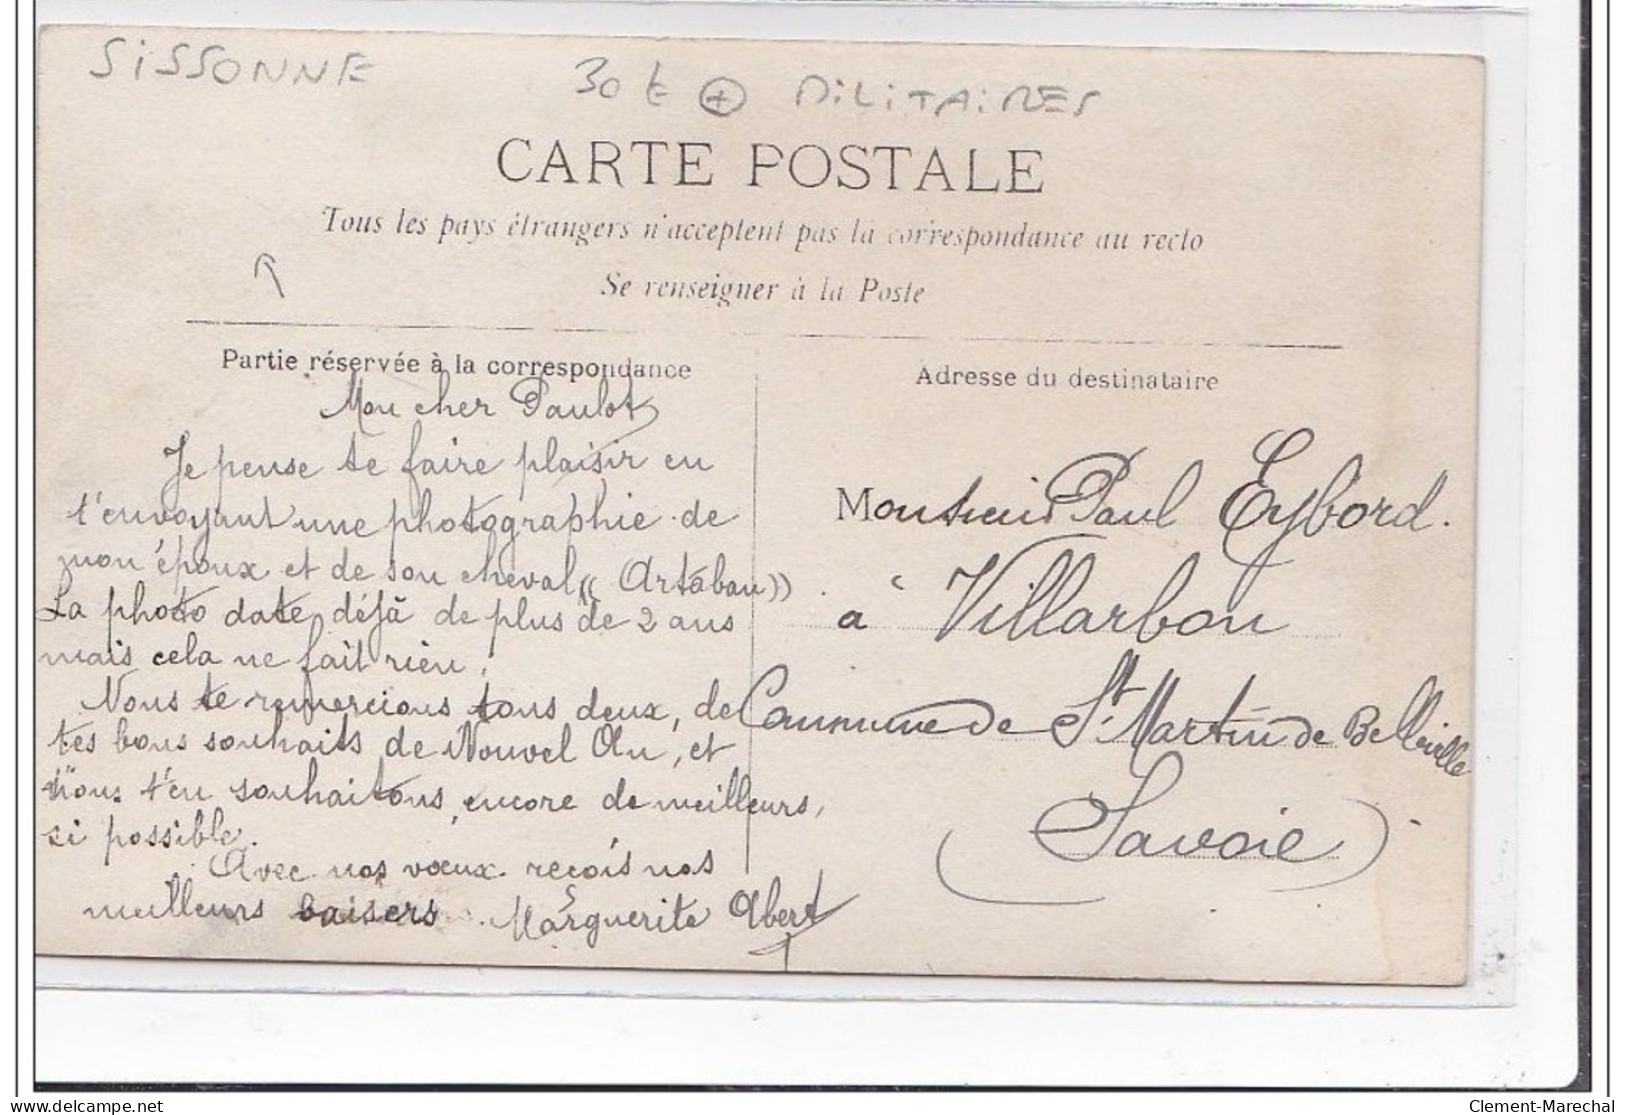 SISSONNE 30 € + MILITAIRES
CARTE POSTALE
Tous les pays étrangers n'acceptent pas la correspondance au recto
Se renseigner à la Poste
Partie réservée à la correspondance
Mon cher Paulot
Je pense te faire plaisir en
t'envoyant une photographie de
mon époux et de son cheval (( Artaban))
La photo date déjà de plus de 2 ans
mais cela ne fait rien.
Nous te remercions tous deux, de
tes bons souhaits de Nouvel An, et
nous t'en souhaitons, encore de meilleurs,
si possible.
Avec nos vœux reçois nos
meilleurs baisers. Marguerite Abert
Adresse du destinataire
Monsieur Paul Eybord.
à Villarbon
Commune de St Martin de Belleville
(Savoie)
delcampe.net
Clement-Marechal